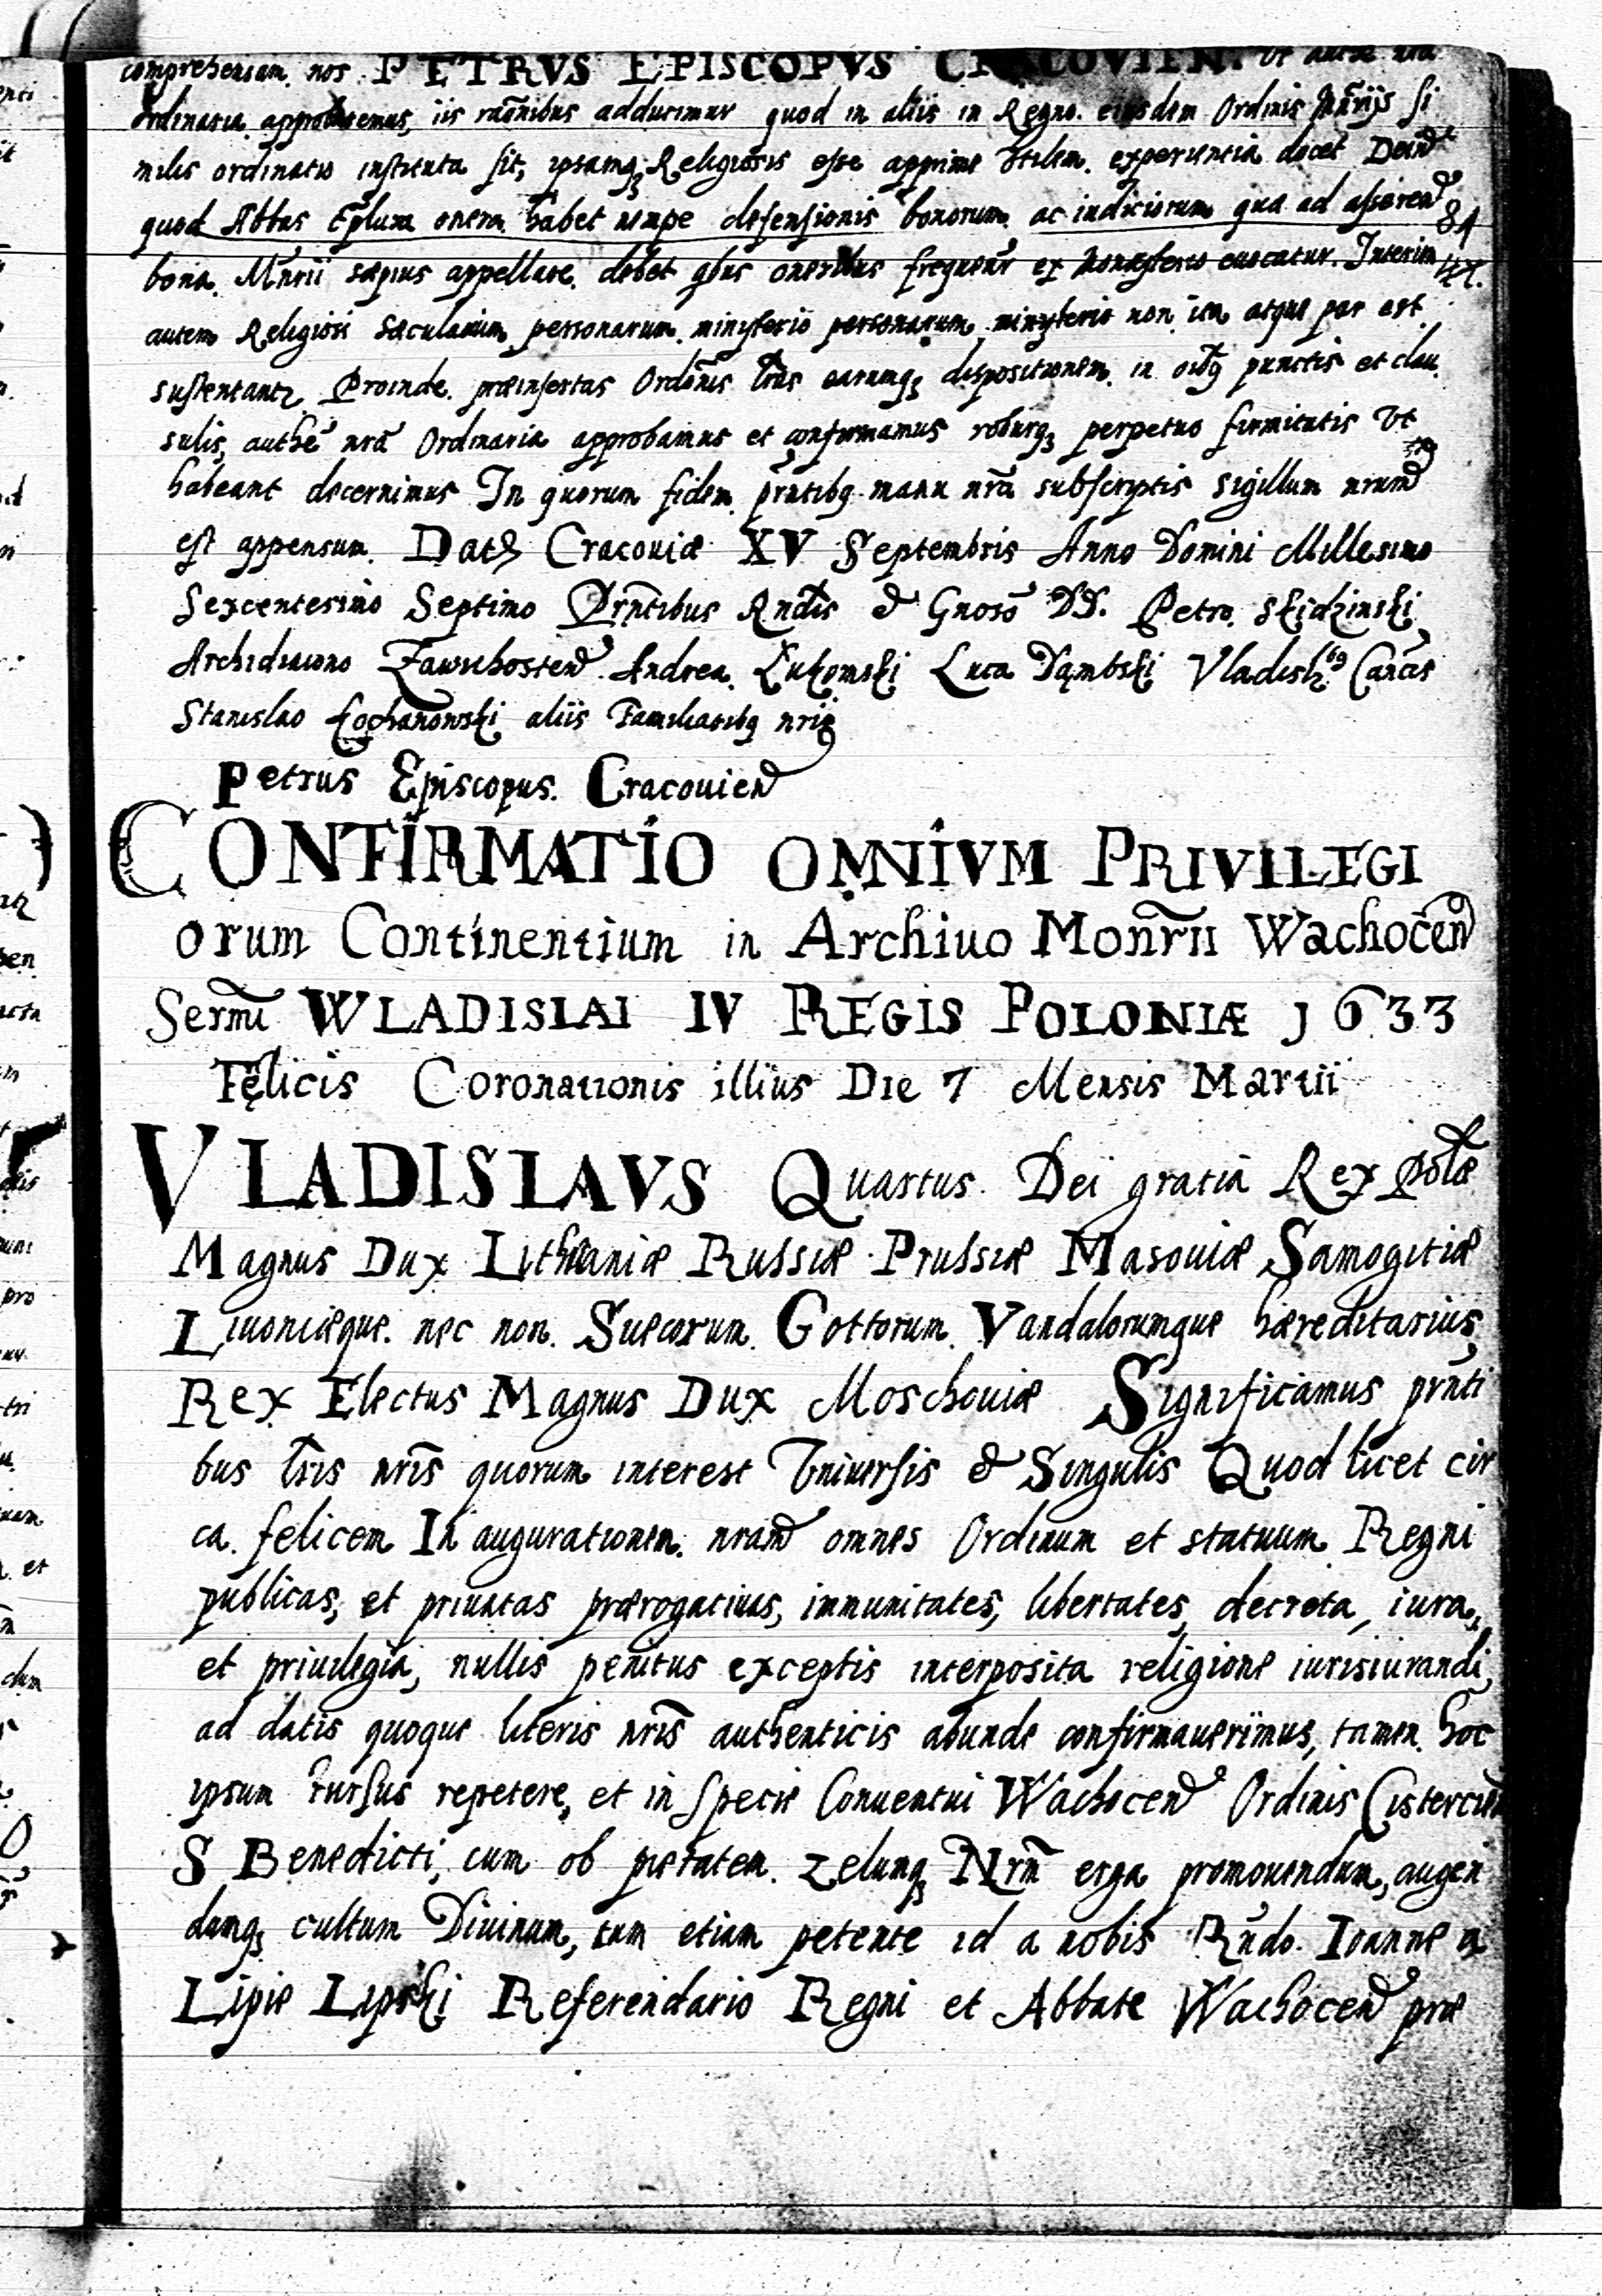 comprehensam nos PETRVS EPISCOPVS CRACOVIEN. Ut authe nra
Ordinaria approbaremus, iis raõnibus adducimur quod in aliis in Regno eiusdem Ordinis Mñriis si
milis ordinatio instituta sit, ipsamq Religiosis esse apprime Utilem experientia docet Dein
quod Abbas Eplura onera habet nempe defensionis bonorum ac iudiciorum qua ad asseren
81
bona Mñrii sæpius appellare debet qbus oneribus frequenr ex Monasterio euocatur. Interim
autem Religiosi Sæcularium personarum ministerio personarum ministerio non ita atque par est
sustentantr Proinde præinsertas Ordinis lras earumq dispositionem in oibq punctis et clau
sulis, authe nrã Ordinaria approbamus et confirmamus roburq perpetuo firmitatis Ut
habeant decernimus In quorum fidem prñtibq manu nrã subscriptis sigillum nrum
est appensum Dat Cracouiæ XV Septembris Anno Domini Millesimo
Sexcentesimo Septimo Prñtibus Rndis & Gnoso DD. Petro Skidzinski
Archidiacono Zawichosten Andrea Lukomski Luca Dąmbski Vladisl Cancis
Stanislao Kochanowski aliis Familiaribq nris
Petrus Episcopus Cracouien
CONFIRMATIO OMNIVM PRIVILEGI
orum Continentium in Archiuo Moñrii Wachocen
Sermi WLADISLAI IV REGIS POLONIÆ 1633
Fęlicis Coronationis illius Die 7 Mensis Martii
VLADISLAVS Quartus Dei gratia Rex Polæ
Magnus Dux Lithuaniæ Russiæ Prussiæ Masouiæ Samogitiæ
Liuoniæque nec non Suecorum Gottorum Vandalorumque hæreditarius
Rex Electus Magnus Dux Moschouiæ Significamus prñti
bus lris nris quorum interest Uniuersis & Singulis Quod licet cir
ca felicem In augurationem nram omnes Ordinum et statuum Regni
publicas, et priuatas prærogatiuas, immunitates, libertates, decreta, iura,
et priuilegia, nullis penitus exceptis interposita religione iurisiurandi,
ad datis quoque literis nris authenticis abunde confirmauerimus, tamen hoc
ipsum rursus repetere, et in specie Conuentui Wachocen Ordinis Cistercien
S Benedicti, cum ob pietatem zelumq Nrm erga promouendum, augen
dumq cultum Diuinum, tum etiam petente id a nobis Rndo. Ioanne a
Lipie Lipski Referendario Regni et Abbate Wachocen præ